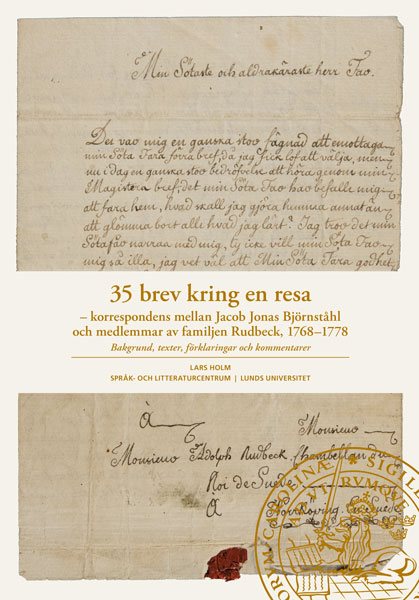 Min Sötaste och aldrakäraste herr Far.
Det var mig en ganska stor fägnad att emottaga
min Söta Fars förra bref, då jag fick lof att välja, men
nu i dag en ganska stor bedröfvelse att höra genom min
Magisters bref, det min Söta Far har befallt mig
att fara hem, hvad skall jag gjöra hemma annat än
att glömma bort alt hvad jag lärt? Jag tror det min
Söta far narras med mig, ty icke vill min Söta Far
mig så illa, jag vet väl att Min Söta Fars godhet
35 brev kring en resa
– korrespondens mellan Jacob Jonas Björnståhl
och medlemmar av familjen Rudbeck, 1768–1778
Bakgrund, texter, förklaringar och kommentarer
LARS HOLM
SPRÅK- OCH LITTERATURCENTRUM | LUNDS UNIVERSITET
À Monsieur
Monsieur Adolph Rudbeck, Chambellan du
Roi de Suede
À Norrkoping en Suede
CAROLINÆ SIGILL
AD UTRUMQUE